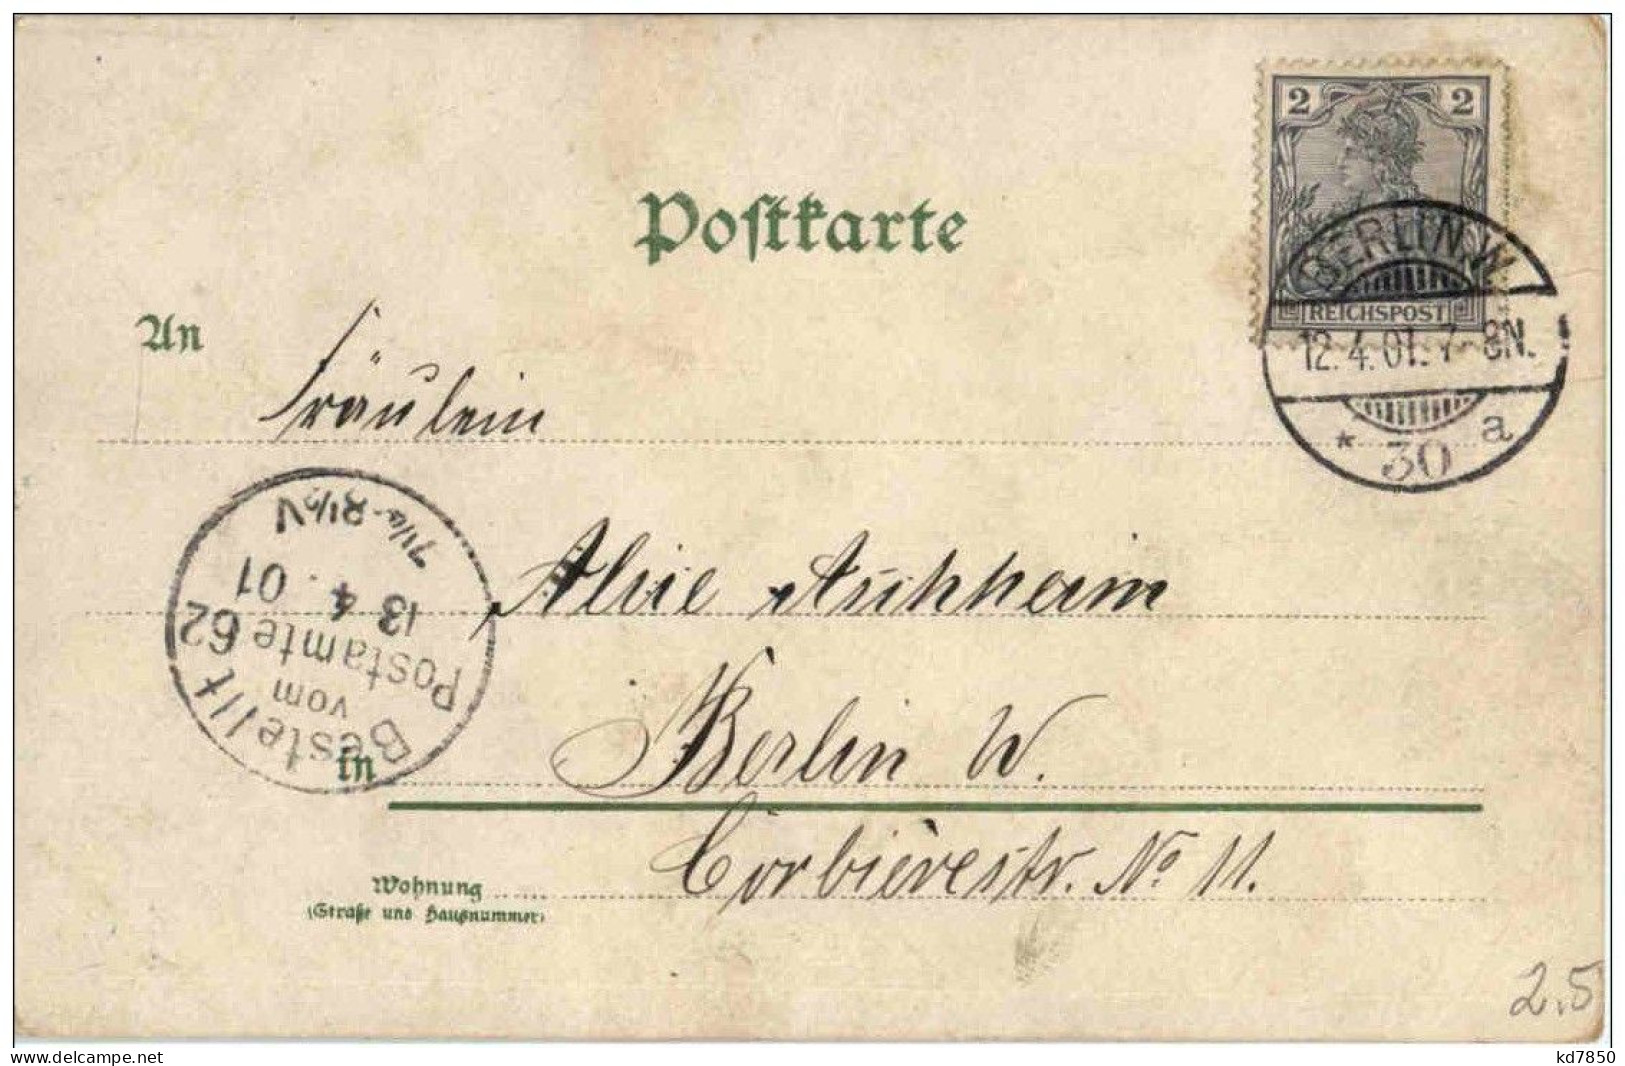 2 2
REICHSPOST
BERLIN.W.
12.4.01. 7-8N.
* 30 a
Postkarte
An
Fräulein
Bestellt
vom
Postamte 62
13 4. 01
7¼-8½V
Alice
Berlin W.
in
Corbièrestr. No 11.
Wohnung
(Straße und Hausnummer)
2.5
delcampe.net
kd7850